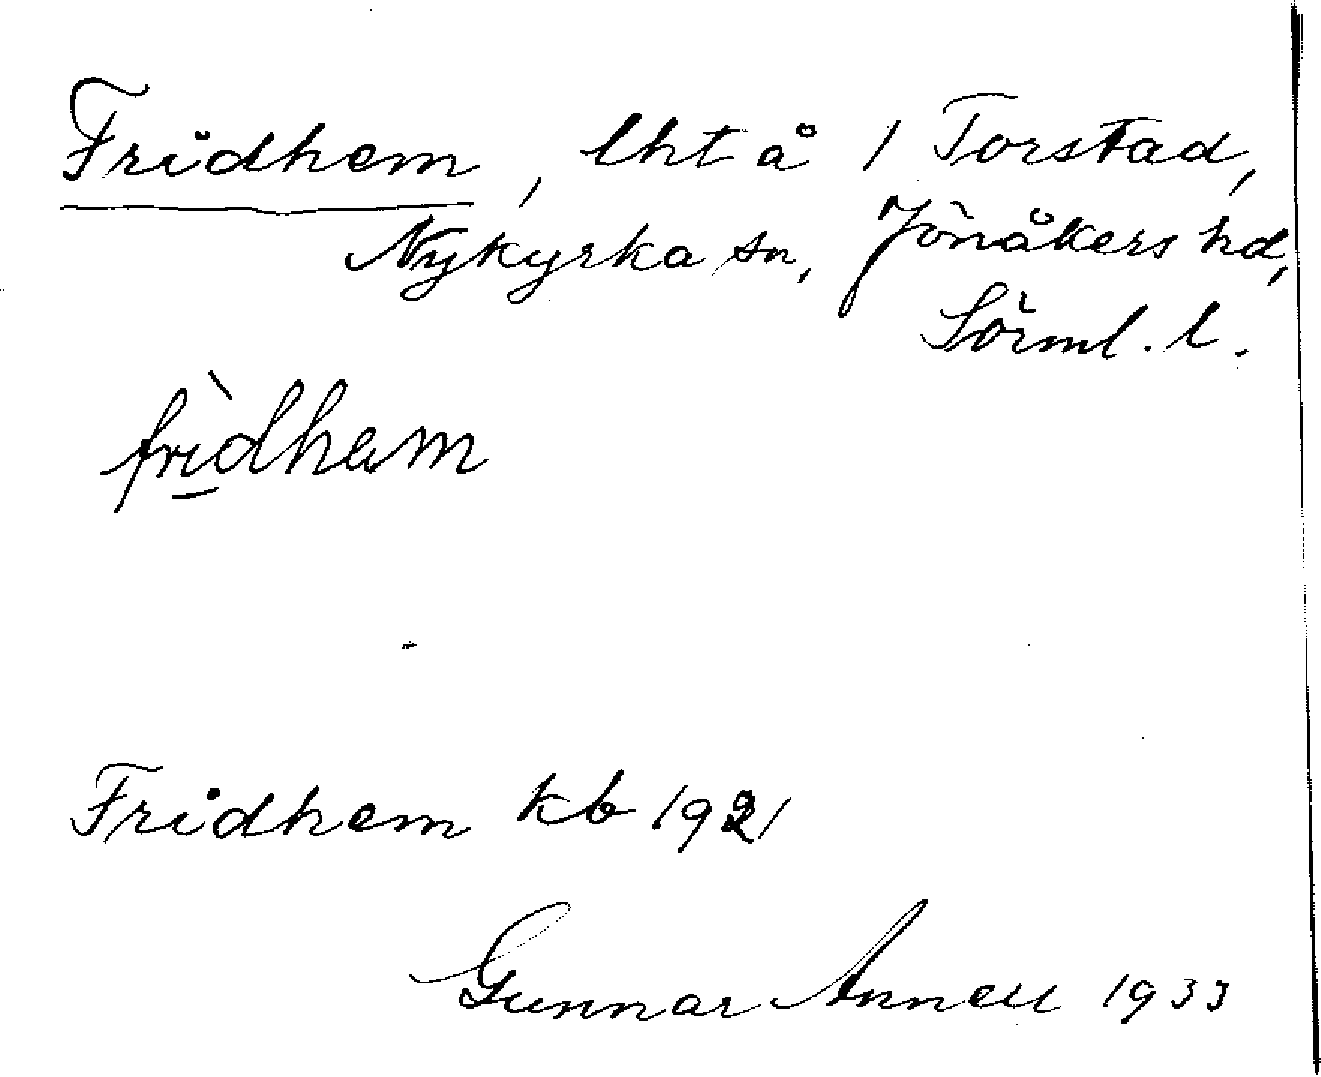 Fridhem, lht å 1 Torstad,
Nykyrka sn, Jönåkers hd,
Sörml. l.
frìdhem
Fridhem kb 1921
Gunnar Annell 1933